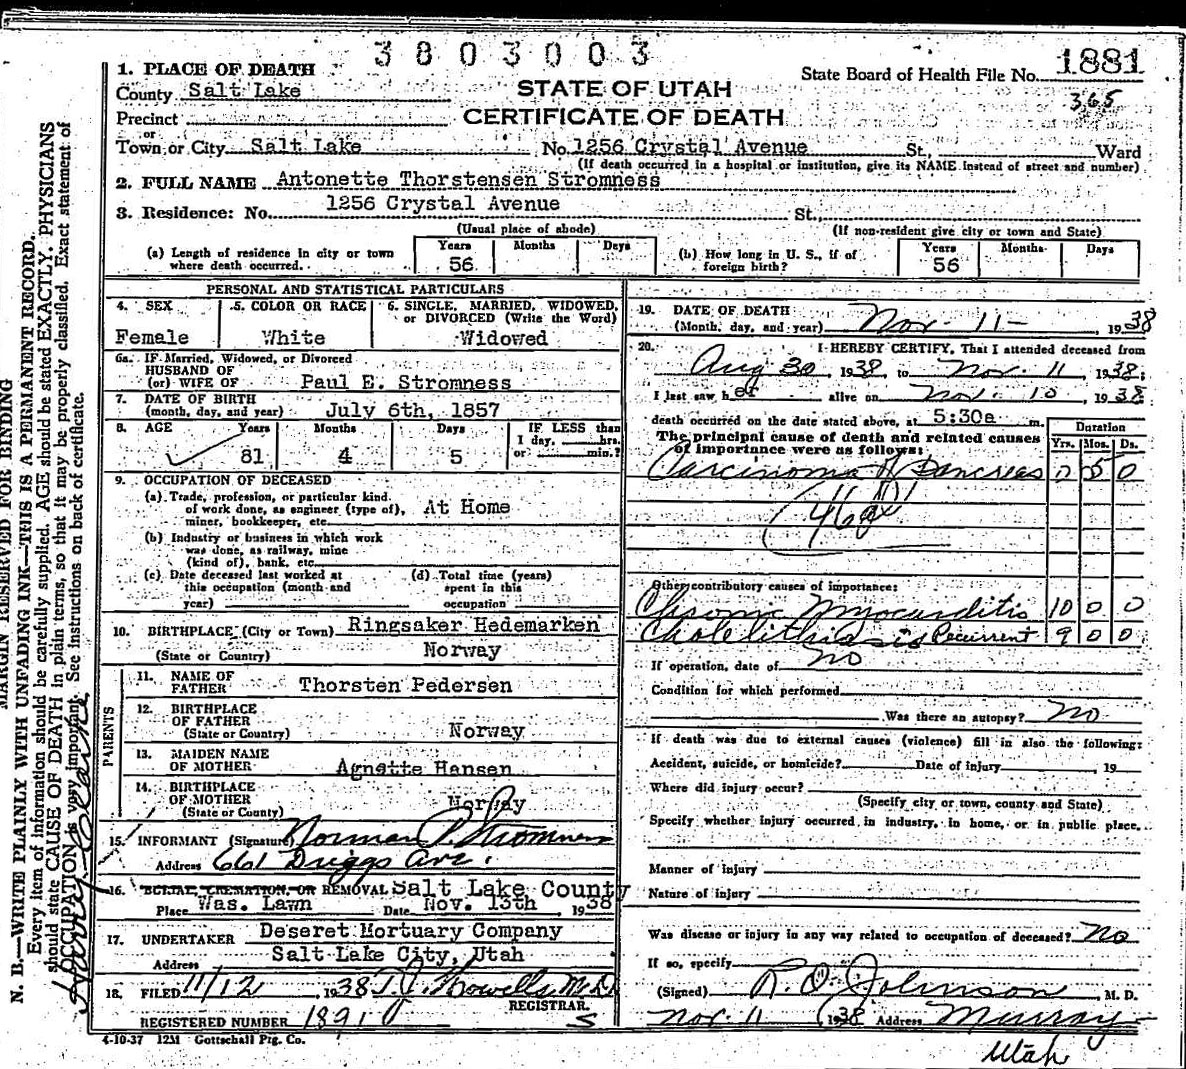 3803003
1881
State Board of Health File No.
365
1. PLACE OF DEATH
County Salt Lake
STATE OF UTAH
CERTIFICATE OF DEATH
Precinct
or
Town or City Salt Lake No. 1256 Crystal Avenue St. Ward
(If death occurred in a hospital or institution, give its NAME instead of street and number)
2. FULL NAME Antonette Thorstensen Stromness
3. Residence: No. 1256 Crystal Avenue St.
(Usual place of abode) (If non-resident give city or town and State)
(a) Length of residence in city or town where death occurred. Years 56 Months Days
(b) How long in U. S., if of foreign birth? Years 56 Months Days
PERSONAL AND STATISTICAL PARTICULARS
4. SEX Female
5. COLOR OR RACE White
6. SINGLE, MARRIED, WIDOWED, or DIVORCED (Write the Word) Widowed
6a. IF Married, Widowed, or Divorced
HUSBAND OF
(or) WIFE OF Paul E. Stromness
7. DATE OF BIRTH
(month, day, and year) July 6th, 1857
8. AGE Years 81 Months 4 Days 5 IF LESS than 1 day, hrs. or min.?
9. OCCUPATION OF DECEASED
(a) Trade, profession, or particular kind of work done, as engineer (type of), miner, bookkeeper, etc. At Home
(b) Industry or business in which work was done, as railway, mine (kind of), bank, etc.
(c) Date deceased last worked at this occupation (month and year)
(d) Total time (years) spent in this occupation
10. BIRTHPLACE (City or Town) Ringsaker Hedemarken
(State or Country) Norway
PARENTS
11. NAME OF FATHER Thorsten Pedersen
12. BIRTHPLACE OF FATHER (State or Country) Norway
13. MAIDEN NAME OF MOTHER Agnette Hansen
14. BIRTHPLACE OF MOTHER (State or County) Norway
15. INFORMANT (Signature) Norman P. Stromness
Address 661 Driggs Ave.
16. BURIAL, CREMATION, OR REMOVAL Salt Lake County
Place Was. Lawn Date Nov. 13th 1938
17. UNDERTAKER Deseret Mortuary Company
Address Salt Lake City, Utah
18. FILED 11/12 1938 T. J. Howells M.D.
REGISTRAR.
REGISTERED NUMBER 1891
S
4-10-37 12M Gottschall Ptg. Co.
19. DATE OF DEATH
(Month, day, and year) Nov. 11 - , 1938
20. I HEREBY CERTIFY, That I attended deceased from
Aug 30, 1938, to Nov. 11, 1938;
I last saw her alive on Nov. 10, 1938
death occurred on the date stated above, at 5:30a m.
The principal cause of death and related causes of importance were as follows:
Duration
Yrs. Mos. Ds.
Carcinoma of Pancreas 0 5 0
Other contributory causes of importance:
Chronic Myocarditis 10 0 0
Cholelithiasis Recurrent 9 0 0
If operation, date of no
Condition for which performed
Was there an autopsy? no
If death was due to external causes (violence) fill in also the following:
Accident, suicide, or homicide? Date of injury , 19
Where did injury occur?
(Specify city or town, county and State)
Specify whether injury occurred in industry, in home, or in public place.
Manner of injury
Nature of injury
Was disease or injury in any way related to occupation of deceased? no
If so, specify
(Signed) R. O. Johnson, M. D.
Nov. 11 1938 Address Murray
Utah
MARGIN RESERVED FOR BINDING
N. B.—WRITE PLAINLY WITH UNFADING INK—THIS IS A PERMANENT RECORD.
Every item of information should be carefully supplied. AGE should be stated EXACTLY. PHYSICIANS
should state CAUSE OF DEATH in plain terms, so that it may be properly classified. Exact statement of
OCCUPATION is very important. See instructions on back of certificate.